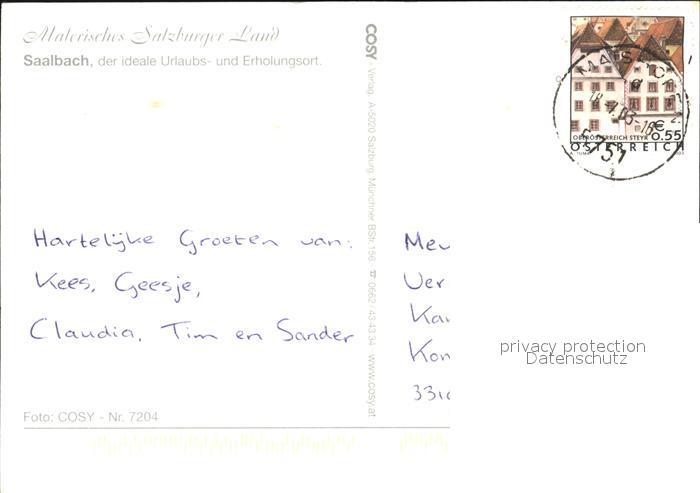 Malerisches Salzburger Land
Saalbach, der ideale Urlaubs- und Erholungsort.
COSY Verlag, A-5020 Salzburg, Münchner BStr. 156 ☎ 0662/43 43 34 www.cosy.at
OBERÖSTERREICH STEYR
€ 0.55
ÖSTERREICH
5751
Hartelijke Groeten van:
Kees, Geesje,
Claudia, Tim en Sander
Foto: COSY - Nr. 7204
Mev
Ver
Kar
Kon
331
privacy protection
Datenschutz